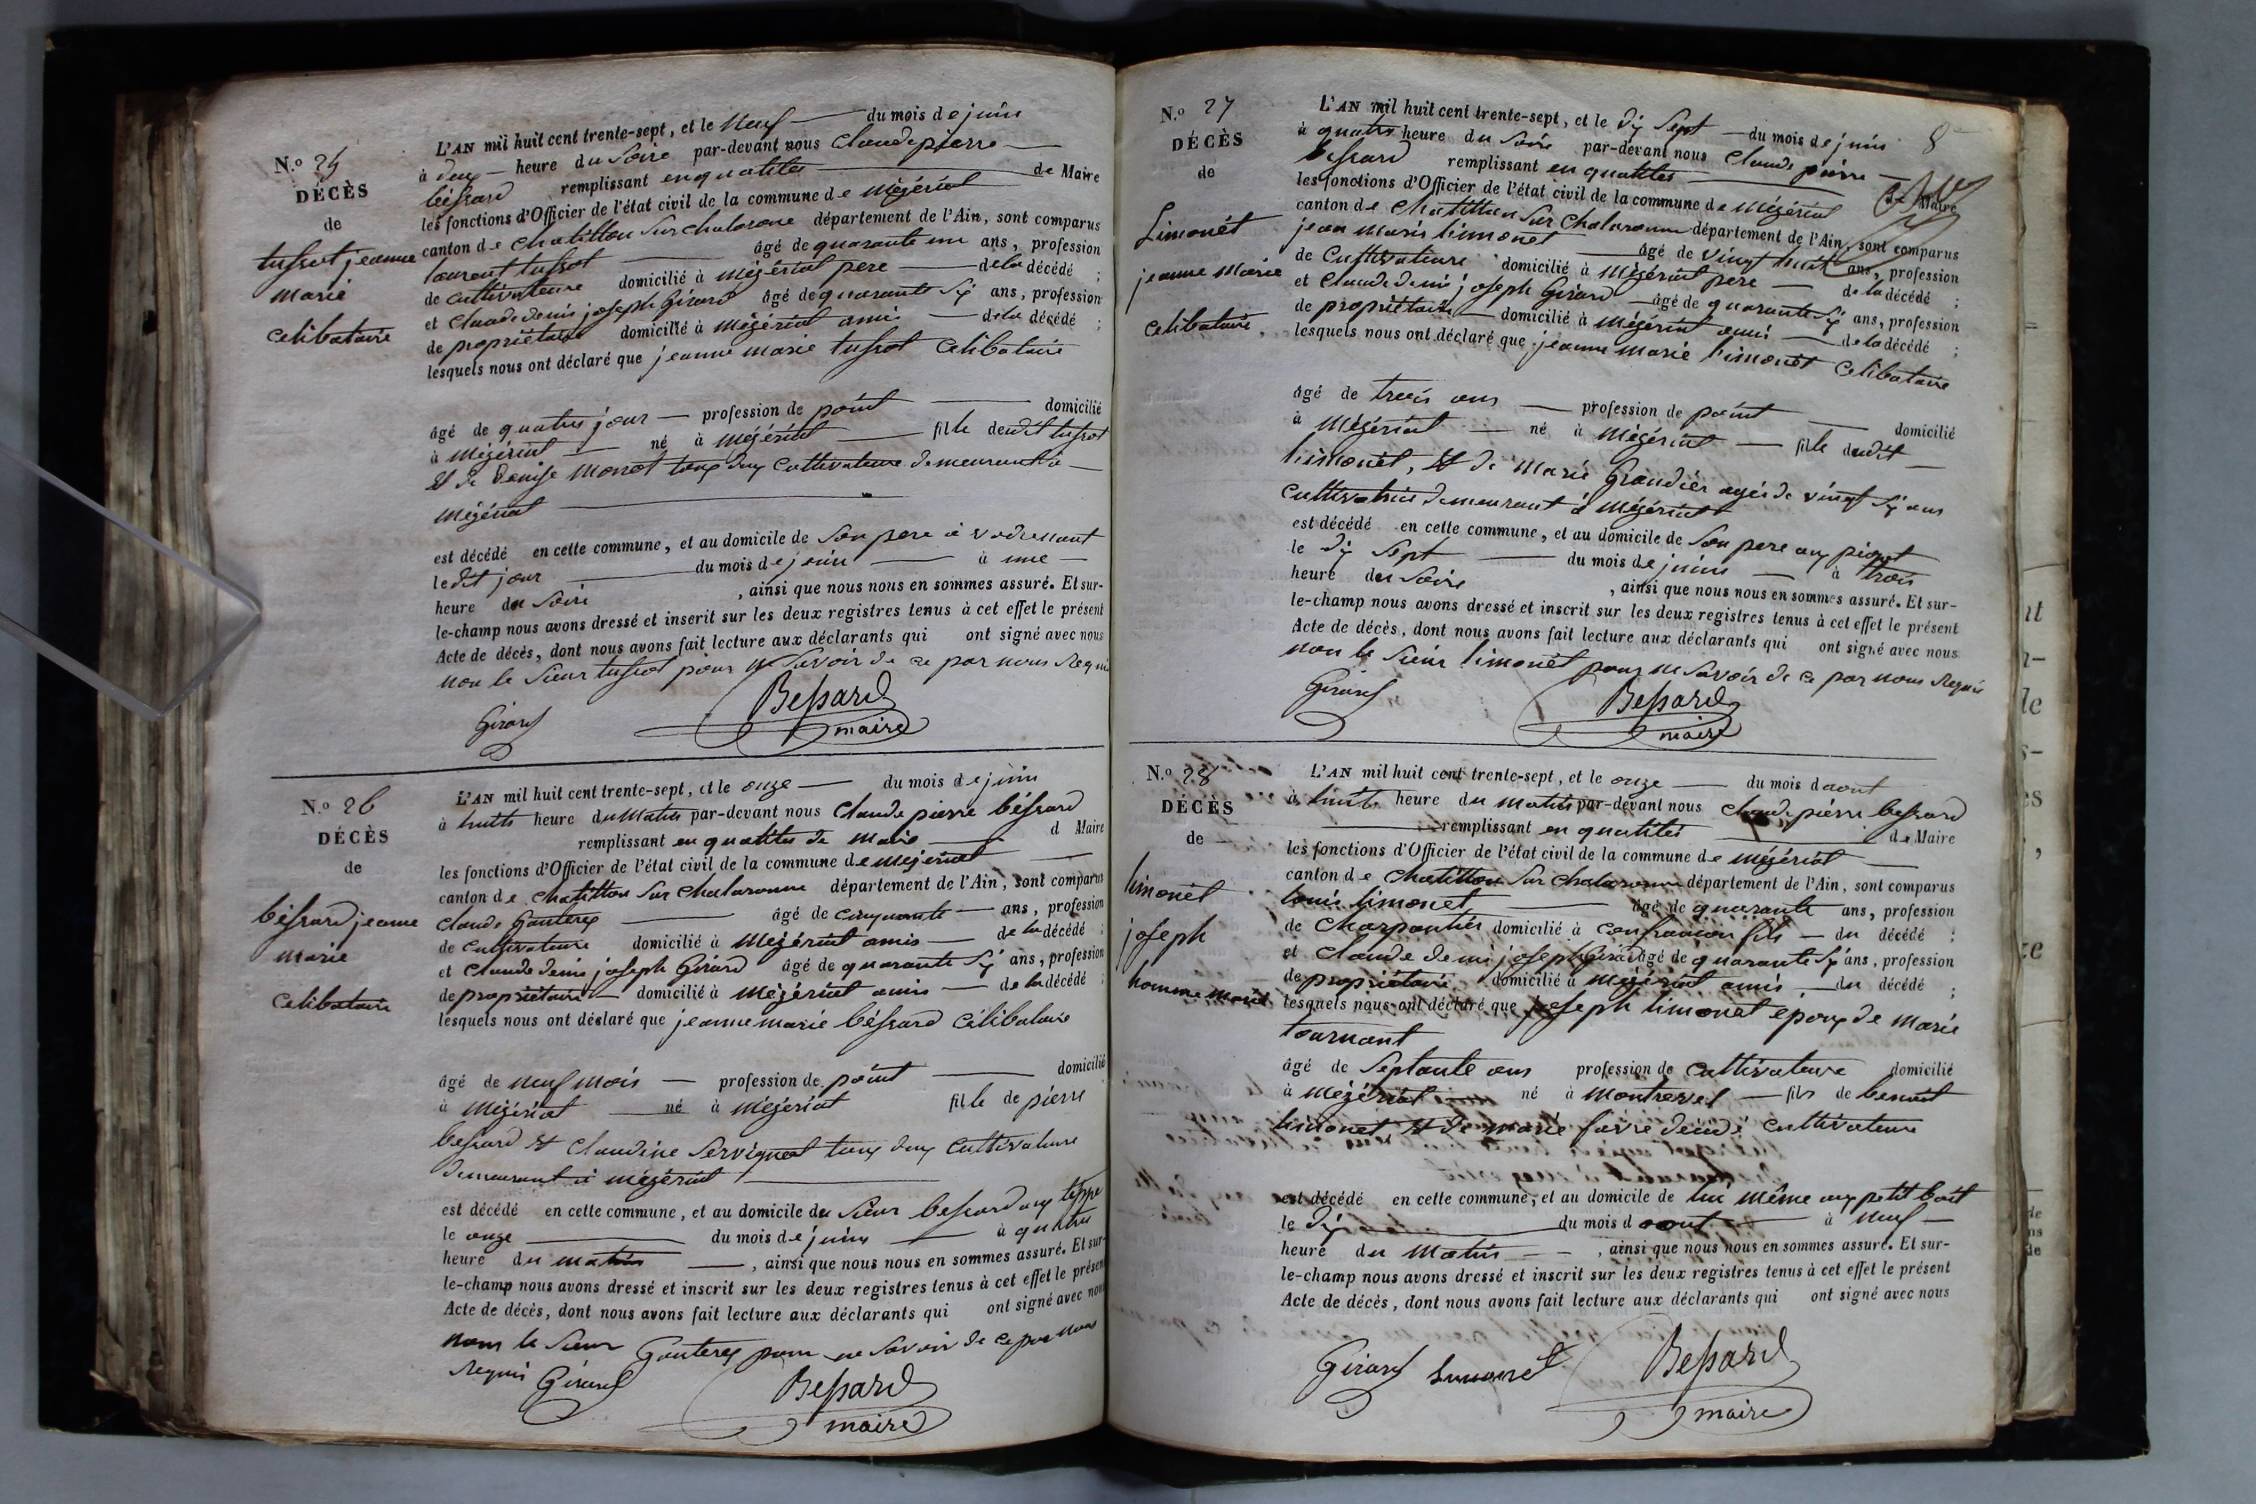 N.o 25
DÉCÈS
de
tussot jeanne
marie
celibataire
L'AN mil huit cent trente-sept, et le neuf du mois de juin
à deux heure du Soire par-devant nous Claude pierre
béssard remplissant en qualites de Maire
les fonctions d'Officier de l'état civil de la commune de Mézériat
canton de Chatillon sur chalarone département de l'Ain, sont comparus
laurent tussot âgé de quarante un ans, profession
de cultivateure domicilié à Mézériat pere de la décédé ;
et Claude denis joseph Girard âgé de quarante Six ans, profession
de propriétaire domicilié à Mézériat amis de la décédé ;
lesquels nous ont déclaré que jeanne marie tussot Celibataire
âgé de quatres jour profession de point domicilié
à Mézériat né à Mézériat fille dudit tussot
Et de Denise Monot tous deux Cultivateure demeurant à
Mézériat
est décédé en cette commune, et au domicile de Son pere à
le dit jour du mois de juin à une
heure du Soire , ainsi que nous nous en sommes assuré. Et sur-
le-champ nous avons dressé et inscrit sur les deux registres tenus à cet effet le présent
Acte de décès, dont nous avons fait lecture aux déclarants qui ont signé avec nous
non le Sieur tussot pour ne Savoir de ce par nous Requis
Girard Bessard
maire
N.o 26
DÉCÈS
de
béssard jeanne
marie
celibataire
L'AN mil huit cent trente-sept, et le onze du mois de juin
à huits heure du Matin par-devant nous Claude pierre béssard
remplissant en qualites de Maire d Maire
les fonctions d'Officier de l'état civil de la commune de Mézériat
canton de Chatillon Sur Chalaronne département de l'Ain, sont comparus
Claude Gonterex âgé de cinquante ans, profession
de Cultivateure domicilié à Mézériat amis de la décédé ;
et Claude denis joseph Girard âgé de quarante Six ans, profession
de propriétaire domicilié à Mézériat amis de la décédé ;
lesquels nous ont déclaré que jeanne marie béssard Célibataire
âgé de neuf mois profession de point domicilié
à Mézériat né à Mézériat fille de pierre
bessard Et Claudine Servignat tous deux Cultivateure
demeurant à Mézériat
est décédé en cette commune, et au domicile du Sieur bessard aux teppe
le onze du mois de juin à quatres
heure du matin , ainsi que nous nous en sommes assuré. Et sur-
le-champ nous avons dressé et inscrit sur les deux registres tenus à cet effet le présent
Acte de décès, dont nous avons fait lecture aux déclarants qui ont signé avec nous
nom le Sieur Gonterex pour ne Savoir de ce par nous
Requis Girard Bessard
maire
N.o 27
DÉCÈS
de
Limonét
jeanne Marie
celibataire
8
L'AN mil huit cent trente-sept, et le dix Sept du mois de juin
à quatres heure du Soire par-devant nous Claude pierre
bessard remplissant en qualites de Maire
les fonctions d'Officier de l'état civil de la commune de Mézériat
canton de Chatillon Sur Chalaronne département de l'Ain, sont comparus
jean Marie limonet âgé de vingt huit ans, profession
de Cultivateure domicilié à Mézériat pere de la décédé ;
et Claude denis joseph Girard âgé de quarante Six ans, profession
de propriétaire domicilié à Mézériat amis de la décédé ;
lesquels nous ont déclaré que jeanne marie limonet Celibataire
âgé de trois ans profession de point domicilié
à Mézériat né à Mézériat fille dudit
limonet, Et de Marie Grandier agée de vingt Six ans
cultivatrice demeurant à Mézériat
est décédé en cette commune, et au domicile de Son pere aux
le dix Sept du mois de juin à trois
heure du Soire , ainsi que nous nous en sommes assuré. Et sur-
le-champ nous avons dressé et inscrit sur les deux registres tenus à cet effet le présent
Acte de décès, dont nous avons fait lecture aux déclarants qui ont signé avec nous
non le Sieur limonet pour ne Savoir de ce par nous Requis
Girard Bessard
maire
N.o 28
DÉCÈS
de
limonét
joseph
homme marié
L'AN mil huit cent trente-sept, et le onze du mois d aout
à huits heure du Matin par-devant nous Claude pierre bessard
remplissant en qualités de Maire
les fonctions d'Officier de l'état civil de la commune de Mézériat
canton de Chatillon Sur Chalaronne département de l'Ain, sont comparus
louis limonet âgé de quarante ans, profession
de Charpantier domicilié à Confrancon fils du décédé ;
et Claude denis joseph Girard âgé de quarante Six ans, profession
de propriétaire domicilié à Mézériat amis du décédé ;
lesquels nous ont déclaré que joseph limonet epoux de Marie
tournant
âgé de Septante ans profession de cultivateure domicilié
à Mézériat né à Montrevel fils de benoit
limonet Et de marie favre Cultivateure
est décédé en cette commune, et au domicile de lui même aux petit boit
le dix du mois d aout à neuf
heure du Matin , ainsi que nous nous en sommes assuré. Et sur-
le-champ nous avons dressé et inscrit sur les deux registres tenus à cet effet le présent
Acte de décès, dont nous avons fait lecture aux déclarants qui ont signé avec nous
Girard Limonét Bessard
maire